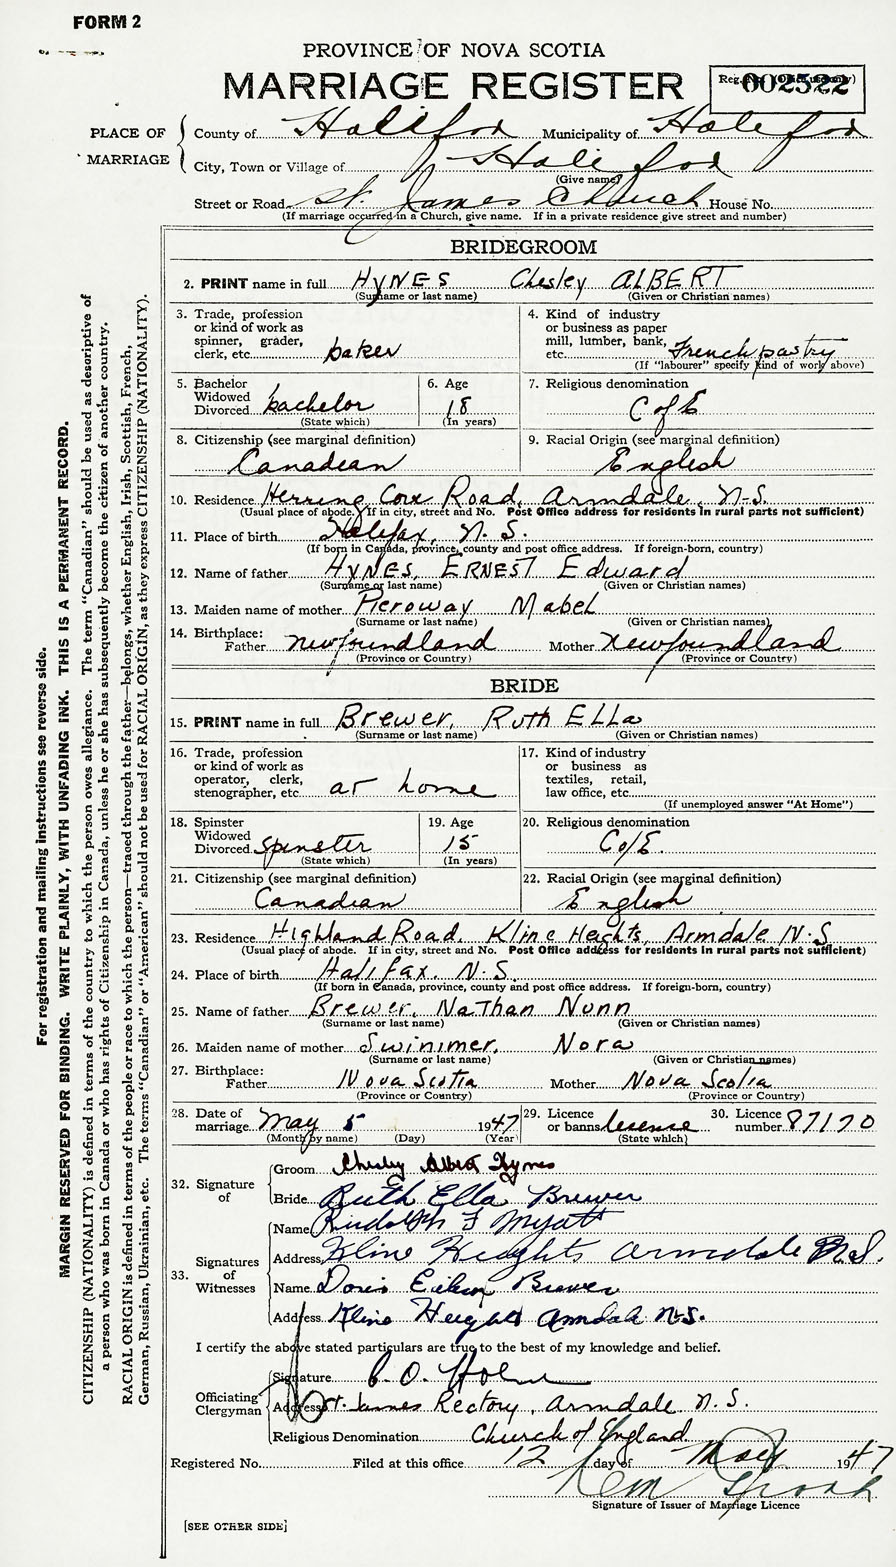 FORM 2
PROVINCE OF NOVA SCOTIA
MARRIAGE REGISTER
Reg. No. (Office use only)
002522
PLACE OF MARRIAGE
County of Halifax Municipality of Halifax
City, Town or Village of Halifax
(Give name)
Street or Road St. James Church House No.
(If marriage occurred in a Church, give name. If in a private residence give street and number)
BRIDEGROOM
2. PRINT name in full HYNES Chesley ALBERT
(Surname or last name) (Given or Christian names)
3. Trade, profession or kind of work as spinner, grader, clerk, etc. baker
4. Kind of industry or business as paper mill, lumber, bank, etc. French pastry
(If "labourer" specify kind of work above)
5. Bachelor Widowed Divorced bachelor
(State which)
6. Age 18
(In years)
7. Religious denomination C of E
8. Citizenship (see marginal definition) Canadian
9. Racial Origin (see marginal definition) English
10. Residence Herring Cove Road, Armdale, N-S.
(Usual place of abode. If in city, street and No. Post Office address for residents in rural parts not sufficient)
11. Place of birth Halifax, N. S.
(If born in Canada, province, county and post office address. If foreign-born, country)
12. Name of father HYNES, ERNEST Edward
(Surname or last name) (Given or Christian names)
13. Maiden name of mother Peroway Mabel
(Surname or last name) (Given or Christian names)
14. Birthplace: Father newfoundland Mother newfoundland
(Province or Country) (Province or Country)
BRIDE
15. PRINT name in full Brewer, Ruth ELLa
(Surname or last name) (Given or Christian names)
16. Trade, profession or kind of work as operator, clerk, stenographer, etc. at home
17. Kind of industry or business as textiles, retail, law office, etc.
(If unemployed answer "At Home")
18. Spinster Widowed Divorced spinster
(State which)
19. Age 15
(In years)
20. Religious denomination C of E.
21. Citizenship (see marginal definition) Canadian
22. Racial Origin (see marginal definition) English
23. Residence Highland Road, Kline Heights, Armdale N-S
(Usual place of abode. If in city, street and No. Post Office address for residents in rural parts not sufficient)
24. Place of birth Halifax. N-S.
(If born in Canada, province, county and post office address. If foreign-born, country)
25. Name of father Brewer, Nathan Nunn
(Surname or last name) (Given or Christian names)
26. Maiden name of mother Swinimer, Nora
(Surname or last name) (Given or Christian names)
27. Birthplace: Father Nova Scotia Mother Nova Scotia
(Province or Country) (Province or Country)
28. Date of marriage May 5 1947
(Month by name) (Day) (Year)
29. Licence or banns licence
(State which)
30. Licence number 87170
32. Signature of
Groom Chesley Albert Hynes
Bride Ruth Ella Brewer
33. Signatures of Witnesses
Name Rudolph F Myatt
Address Kline Heights Armdale N.S.
Name Doris Eileen Brewer
Address Kline Heights Armdale N-S.
I certify the above stated particulars are true to the best of my knowledge and belief.
Officiating Clergyman
Signature
Address St. James Rectory, Armdale N. S.
Religious Denomination Church of England
Registered No. Filed at this office 12 day of May 1947
Signature of Issuer of Marriage Licence
[SEE OTHER SIDE]
For registration and mailing instructions see reverse side.
MARGIN RESERVED FOR BINDING. WRITE PLAINLY, WITH UNFADING INK. THIS IS A PERMANENT RECORD.
CITIZENSHIP (NATIONALITY) is defined in terms of the country to which the person owes allegiance. The term "Canadian" should be used as descriptive of
a person who was born in Canada or who has rights of Citizenship in Canada, unless he or she has subsequently become the citizen of another country.
RACIAL ORIGIN is defined in terms of the people or race to which the person—traced through the father—belongs, whether English, Irish, Scottish, French,
German, Russian, Ukrainian, etc. The terms "Canadian" or "American" should not be used for RACIAL ORIGIN, as they express CITIZENSHIP (NATIONALITY).